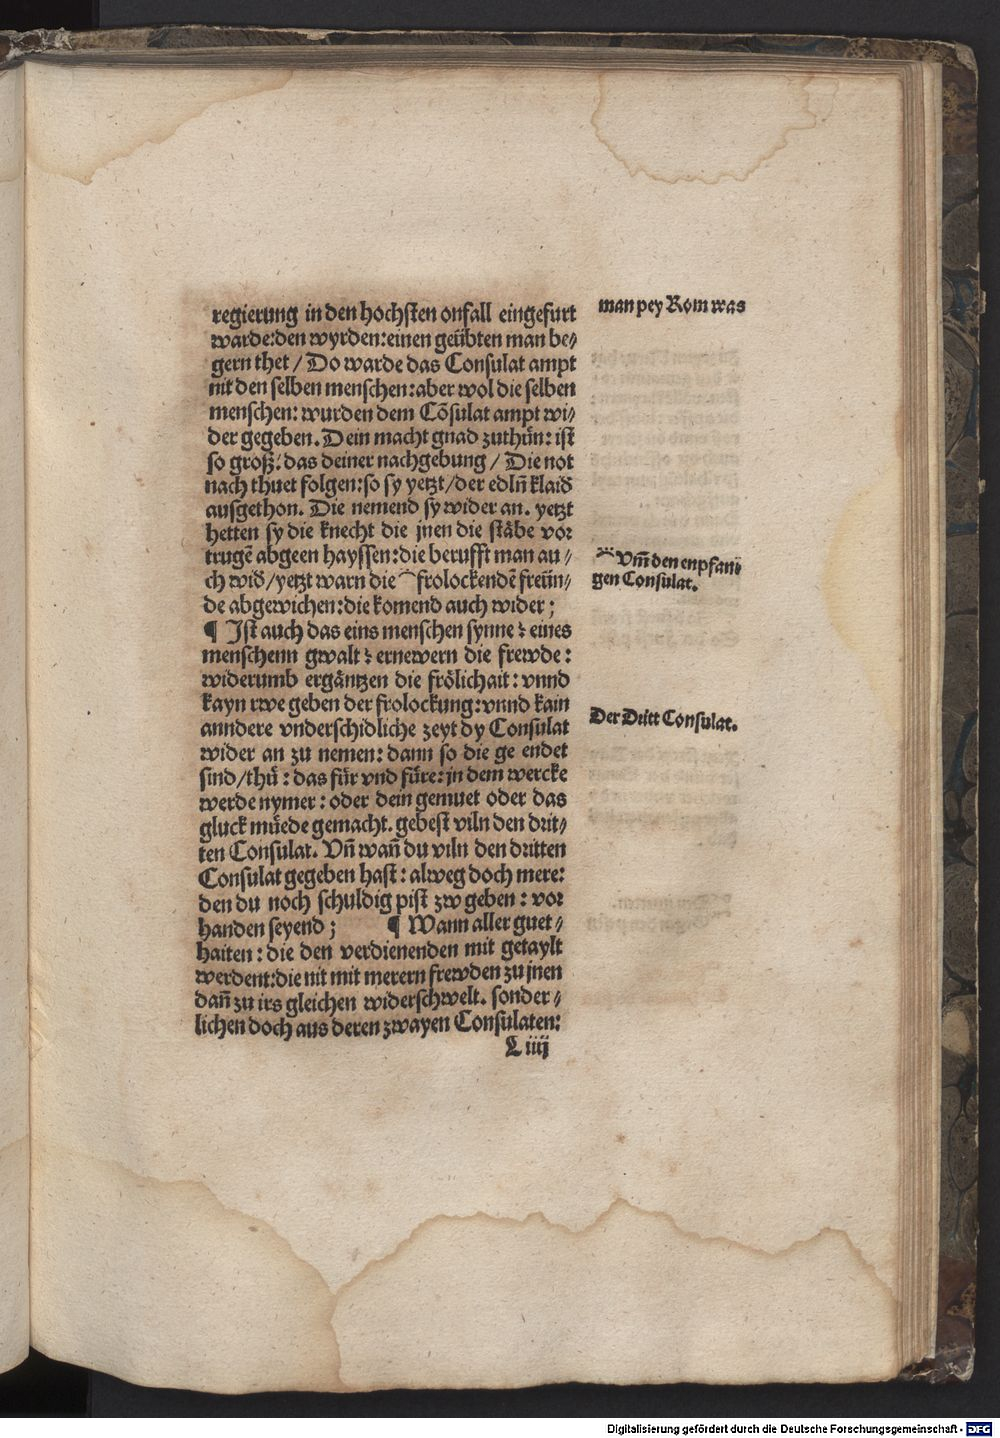 regierung in den hochsten onfall eingefurt
warde:den wyrden:einen geübten man be⸗
gern thet / Do warde das Consulat ampt
nit den selben menschen:aber wol die selben
menschen: wurden dem Cõsulat ampt wi⸗
der gegeben. Dein macht gnad zuthün: ist
so groß: das deiner nachgebung / Die not
nach thuet folgen:so sy yetzt/der edlñ klaid
ausgethon. Die nemend sy wider an. yetzt
hetten sy die knecht die jnen die stäbe vor
trugẽ abgeen hayssen:die berufft man au⸗
ch wid/yetzt warn die frolockendẽ freün⸗
de abgewichen:die komend auch wider;
¶ Ist auch das eins menschen synne ⁊ eines
menschenn gwalt ⁊ ernewern die frewde:
widerumb ergäntzen die frölichait: vnnd
kayn rwe geben der frolockung:vnnd kain
anndere vnderschidliche zeyt dy Consulat
wider an zu nemen: dann so die ge endet
sind/thü: das für vnd füre: jn dem wercke
werde nymer: oder dein gemuet oder das
gluck müede gemacht. gebest viln den drit⸗
ten Consulat. Vñ wañ du viln den dritten
Consulat gegeben hast: alweg doch mere:
den du noch schuldig pist zw geben: vor
handen seyend; ¶ Wann aller guet⸗
haiten: die den verdienenden mit getaylt
werdent:die nit mit merern frewden zu jnen
dañ zu irs gleichen widerschwelt. sonder⸗
lichen doch aus deren zwayen Consulaten:
L iiij
man pey Rom was
Vm̃ den enpfani
gen Consulat.
Der Dritt Consulat.
Digitalisierung gefördert durch die Deutsche Forschungsgemeinschaft - DFG